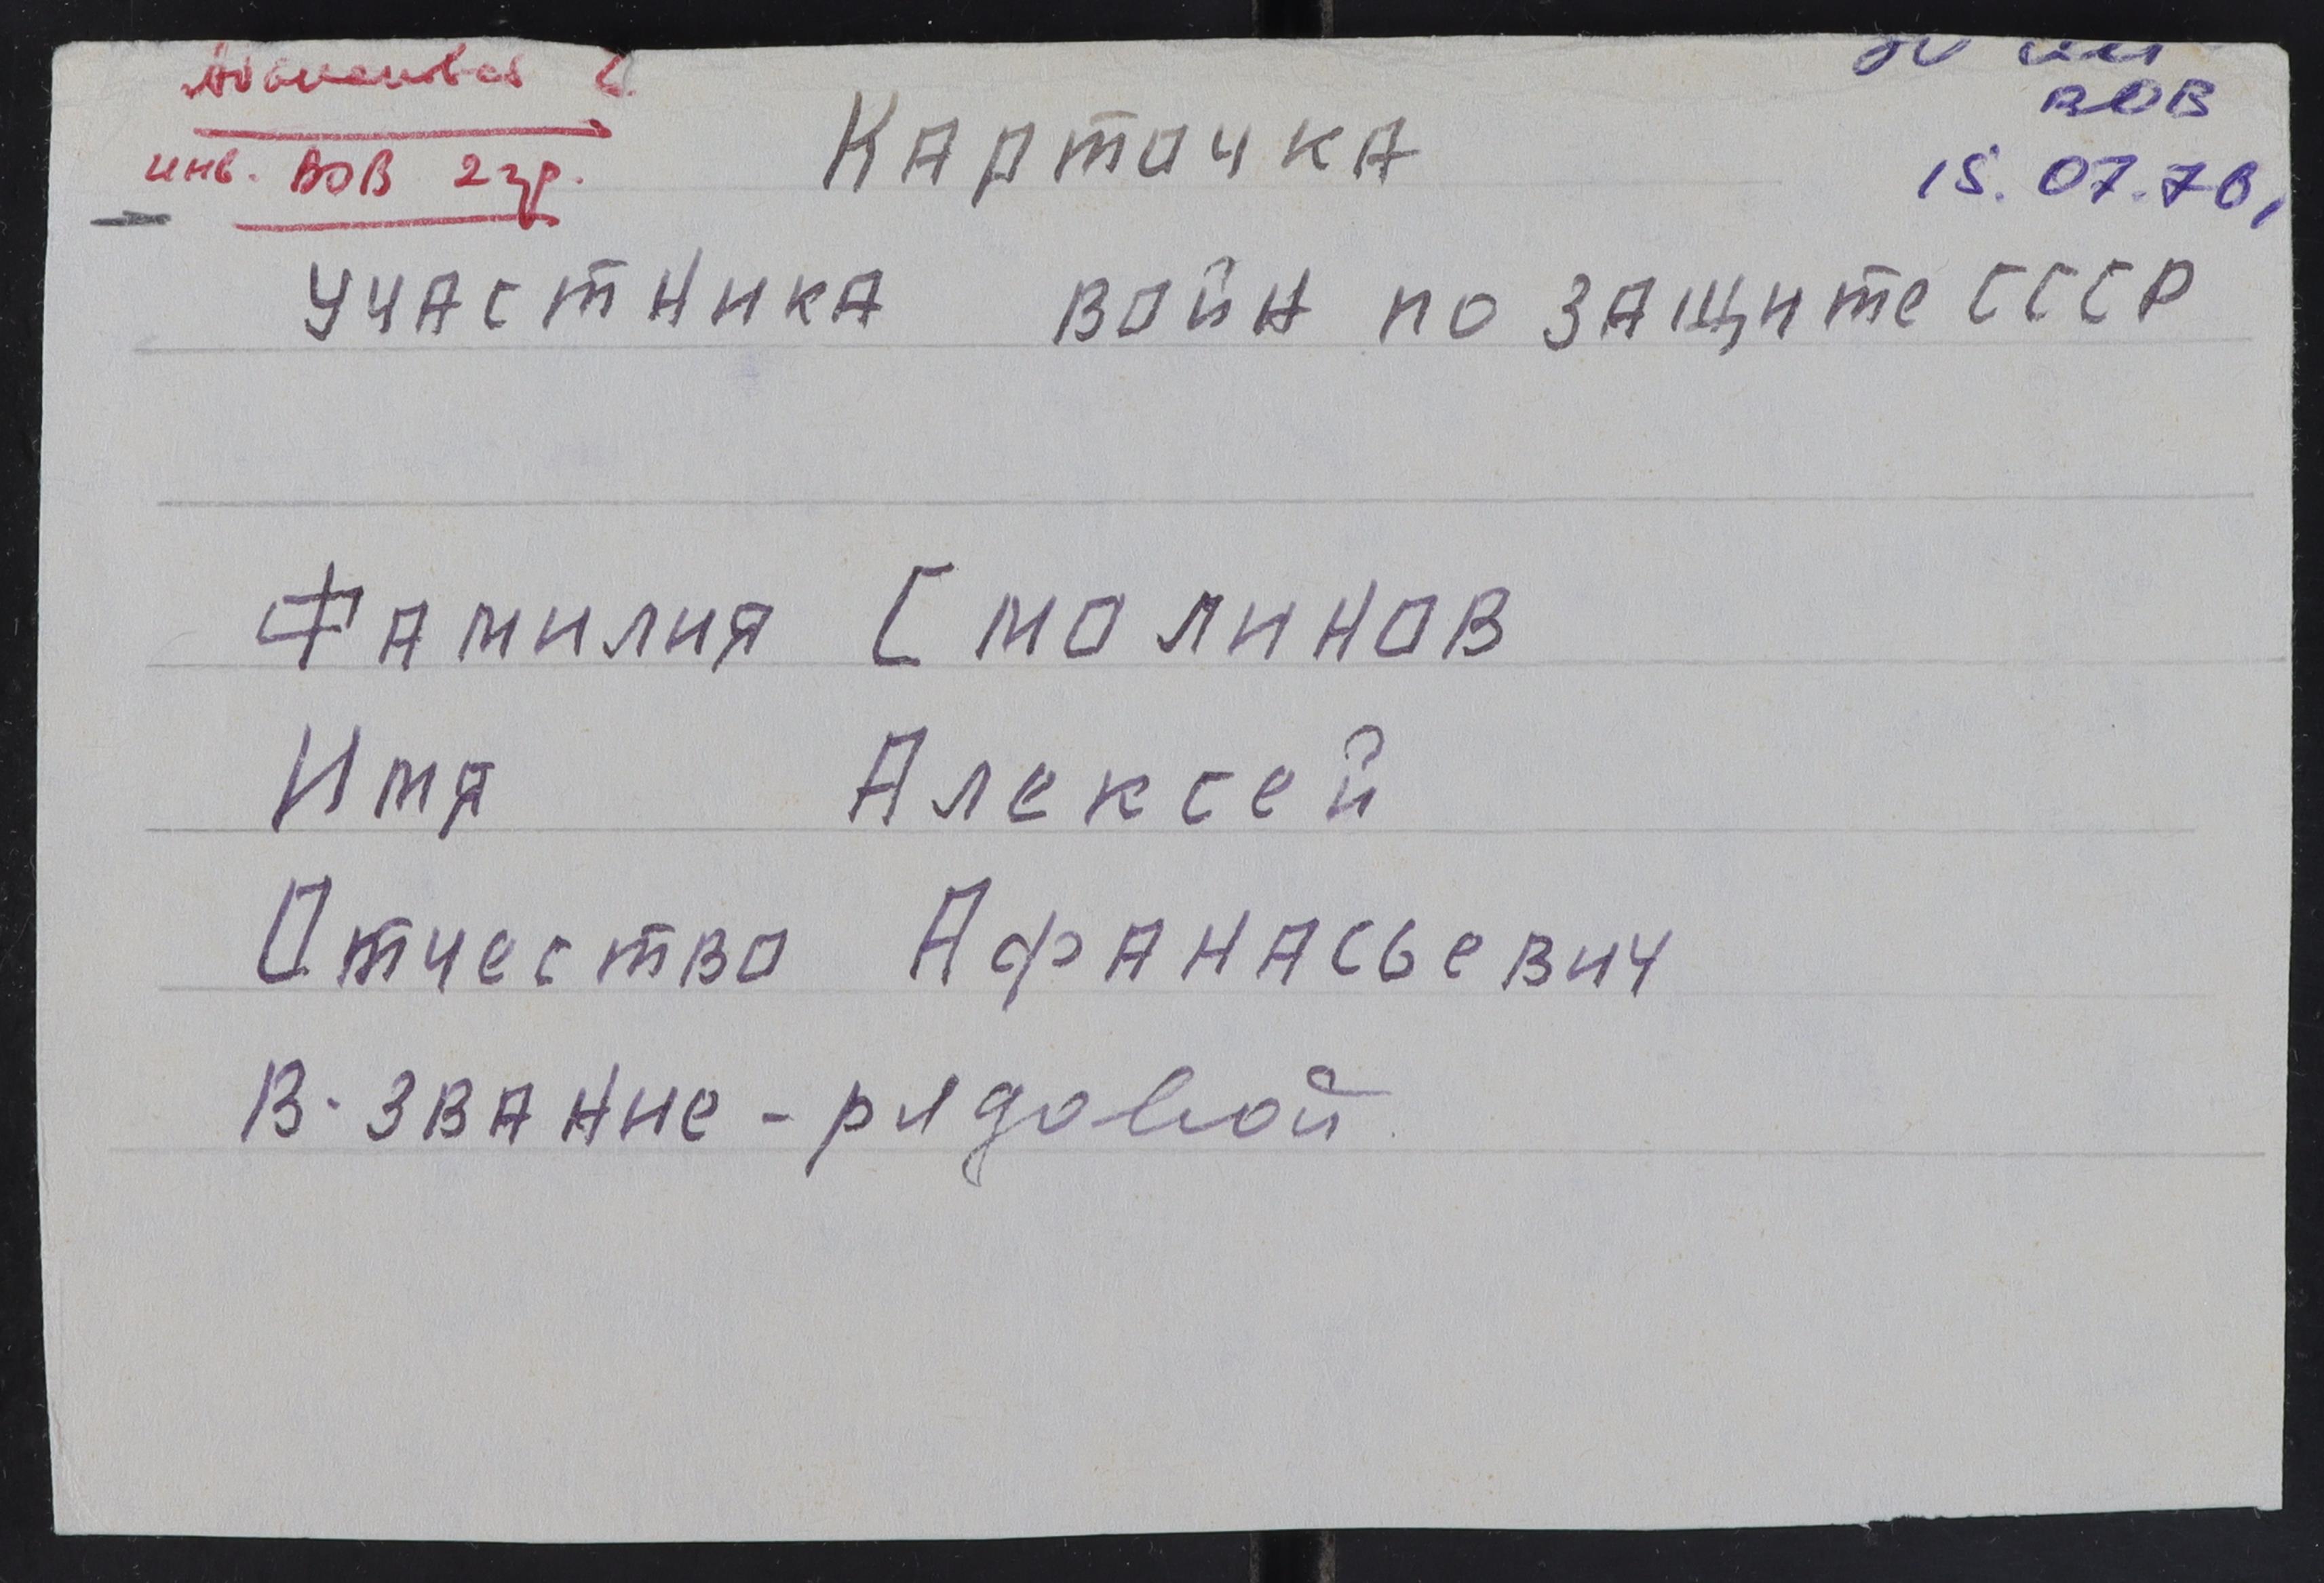 инв. ВОВ 2 гр.
ВОВ
15.07.78,
Карточка
участника войн по защите СССР
Фамилия Смолинов
Имя Алексей
Отчество Афанасьевич
В. звание - рядовой.